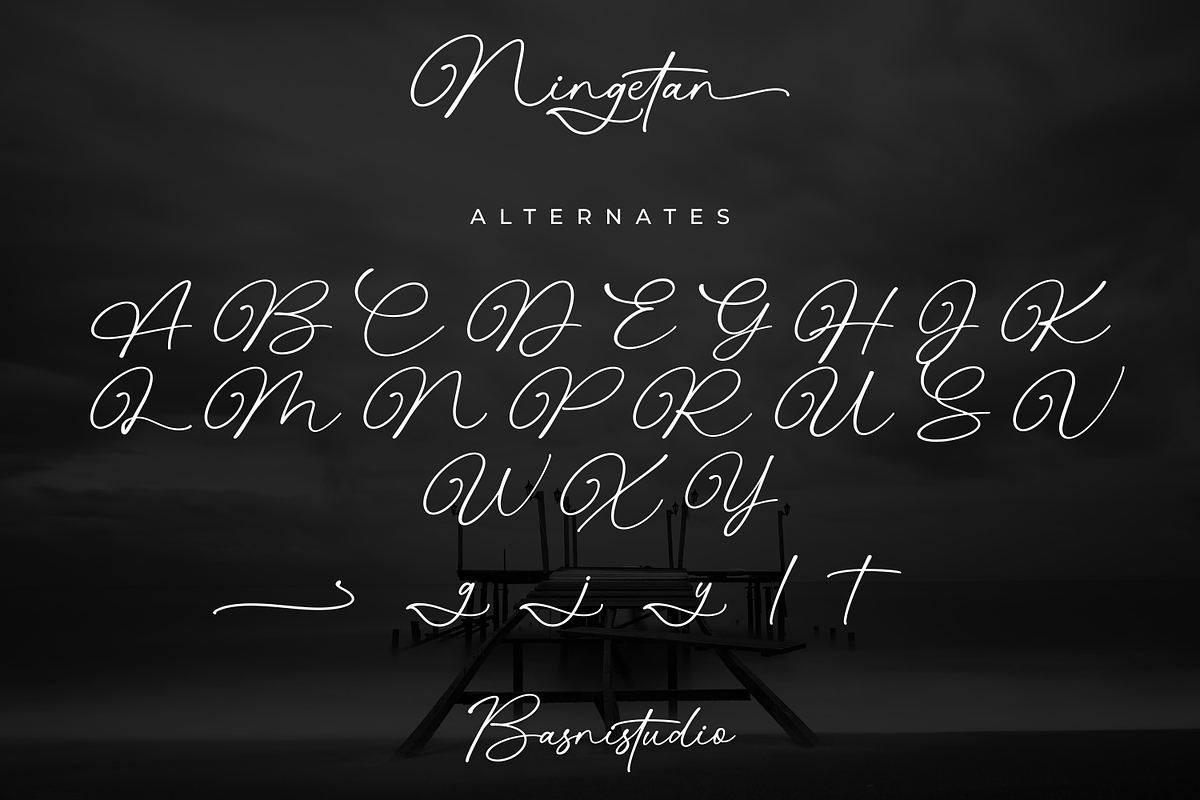 Ningetan
ALTERNATES
A B C D E G H J K
L M N P R U S V
W X Y
g j y l t
Basnistudio